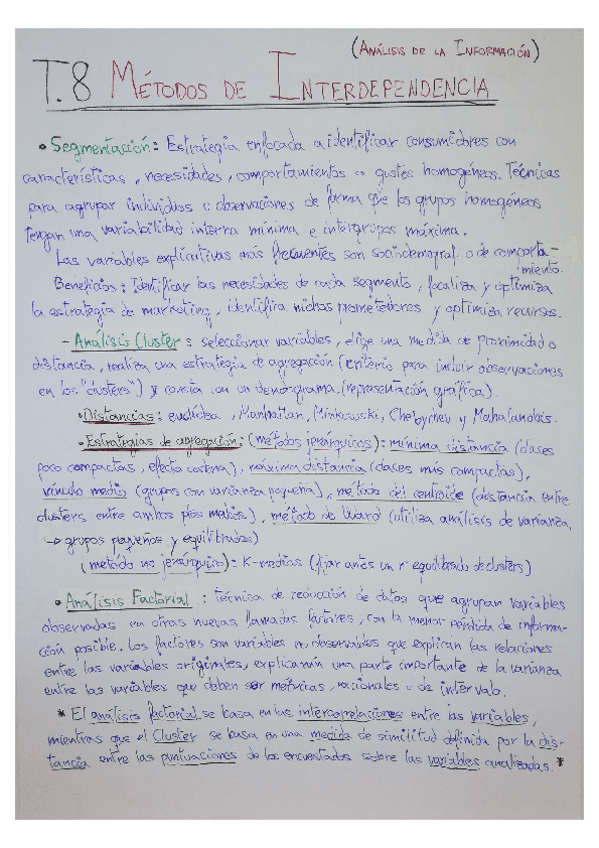 (ANÁLISIS DE LA INFORMACIÓN)
T.8 MÉTODOS DE INTERDEPENDENCIA
• Segmentación: Estrategia enfocada a identificar consumidores con
características, necesidades, comportamientos o gustos homogéneos. Técnicas
para agrupar individuos u observaciones de forma que los grupos homogéneos
tengan una variabilidad interna mínima e intergrupos máxima.
Las variables explicativas más frecuentes son sociodemográf. o de comporta-
miento.
Beneficios: Identificar las necesidades de cada segmento, focaliza y optimiza
la estrategia de marketing, identifica nichos prometedores y optimiza recursos.
- Análisis Cluster: seleccionar variables, elige una medida de proximidad o
distancia, realiza una estrategia de agregación (criterio para incluir observaciones
en los "clusters") y consta con un dendograma (representación gráfica).
• Distancias: euclídea, Manhattan, Minkowski, Chebychev y Mahalanobis.
• Estrategias de agregación: (métodos jerárquicos): mínima distancia (clases
poco compactas, efecto cadena), máxima distancia (clases más compactas),
vínculo medio (grupos con varianza pequeña), método del centroide (distancia entre
clusters entre ambos ptos medios), método de Ward (utiliza análisis de varianza,
→ grupos pequeños y equilibrados)
(metodo no jerárquico): K-medias (fijar antes un nº equilibrado de clusters)
• Análisis Factorial: técnica de reducción de datos que agrupan variables
observadas en otras nuevas llamadas factores, con la menor pérdida de informa-
ción posible. Los factores son variables no observables que explican las relaciones
entre las variables originales, explicarían una parte importante de la varianza
entre las variables que deben ser métricas, racionales o de intervalo.
* El análisis factorial se basa en las intercorrelaciones entre las variables,
mientras que el Cluster se basa en una medida de similitud definida por la dis-
tancia entre las puntuaciones de los encuestados sobre las variables analizadas. *